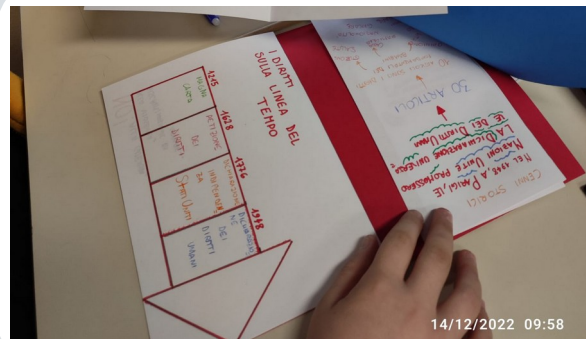 I DIRITTI
SULLA LINEA DEL
TEMPO
1215
MAGNA
1628
PETIZIONE
DEI
DIRITTI
1776
DICHIARAZIONE
INDIPENDEN
ZA
STATI UNITI
1948
DICHIARAZIO
NE
DEI
DIRITTI
UMANI
CENNI STORICI
NEL 1948, A PARIGI, LE
NAZIONI UNITE PROMOSSERO
LA DICHIARAZIONE UNIVERSA
LE DEI DIRITTI UMANI
30 ARTICOLI
14/12/2022 09:58